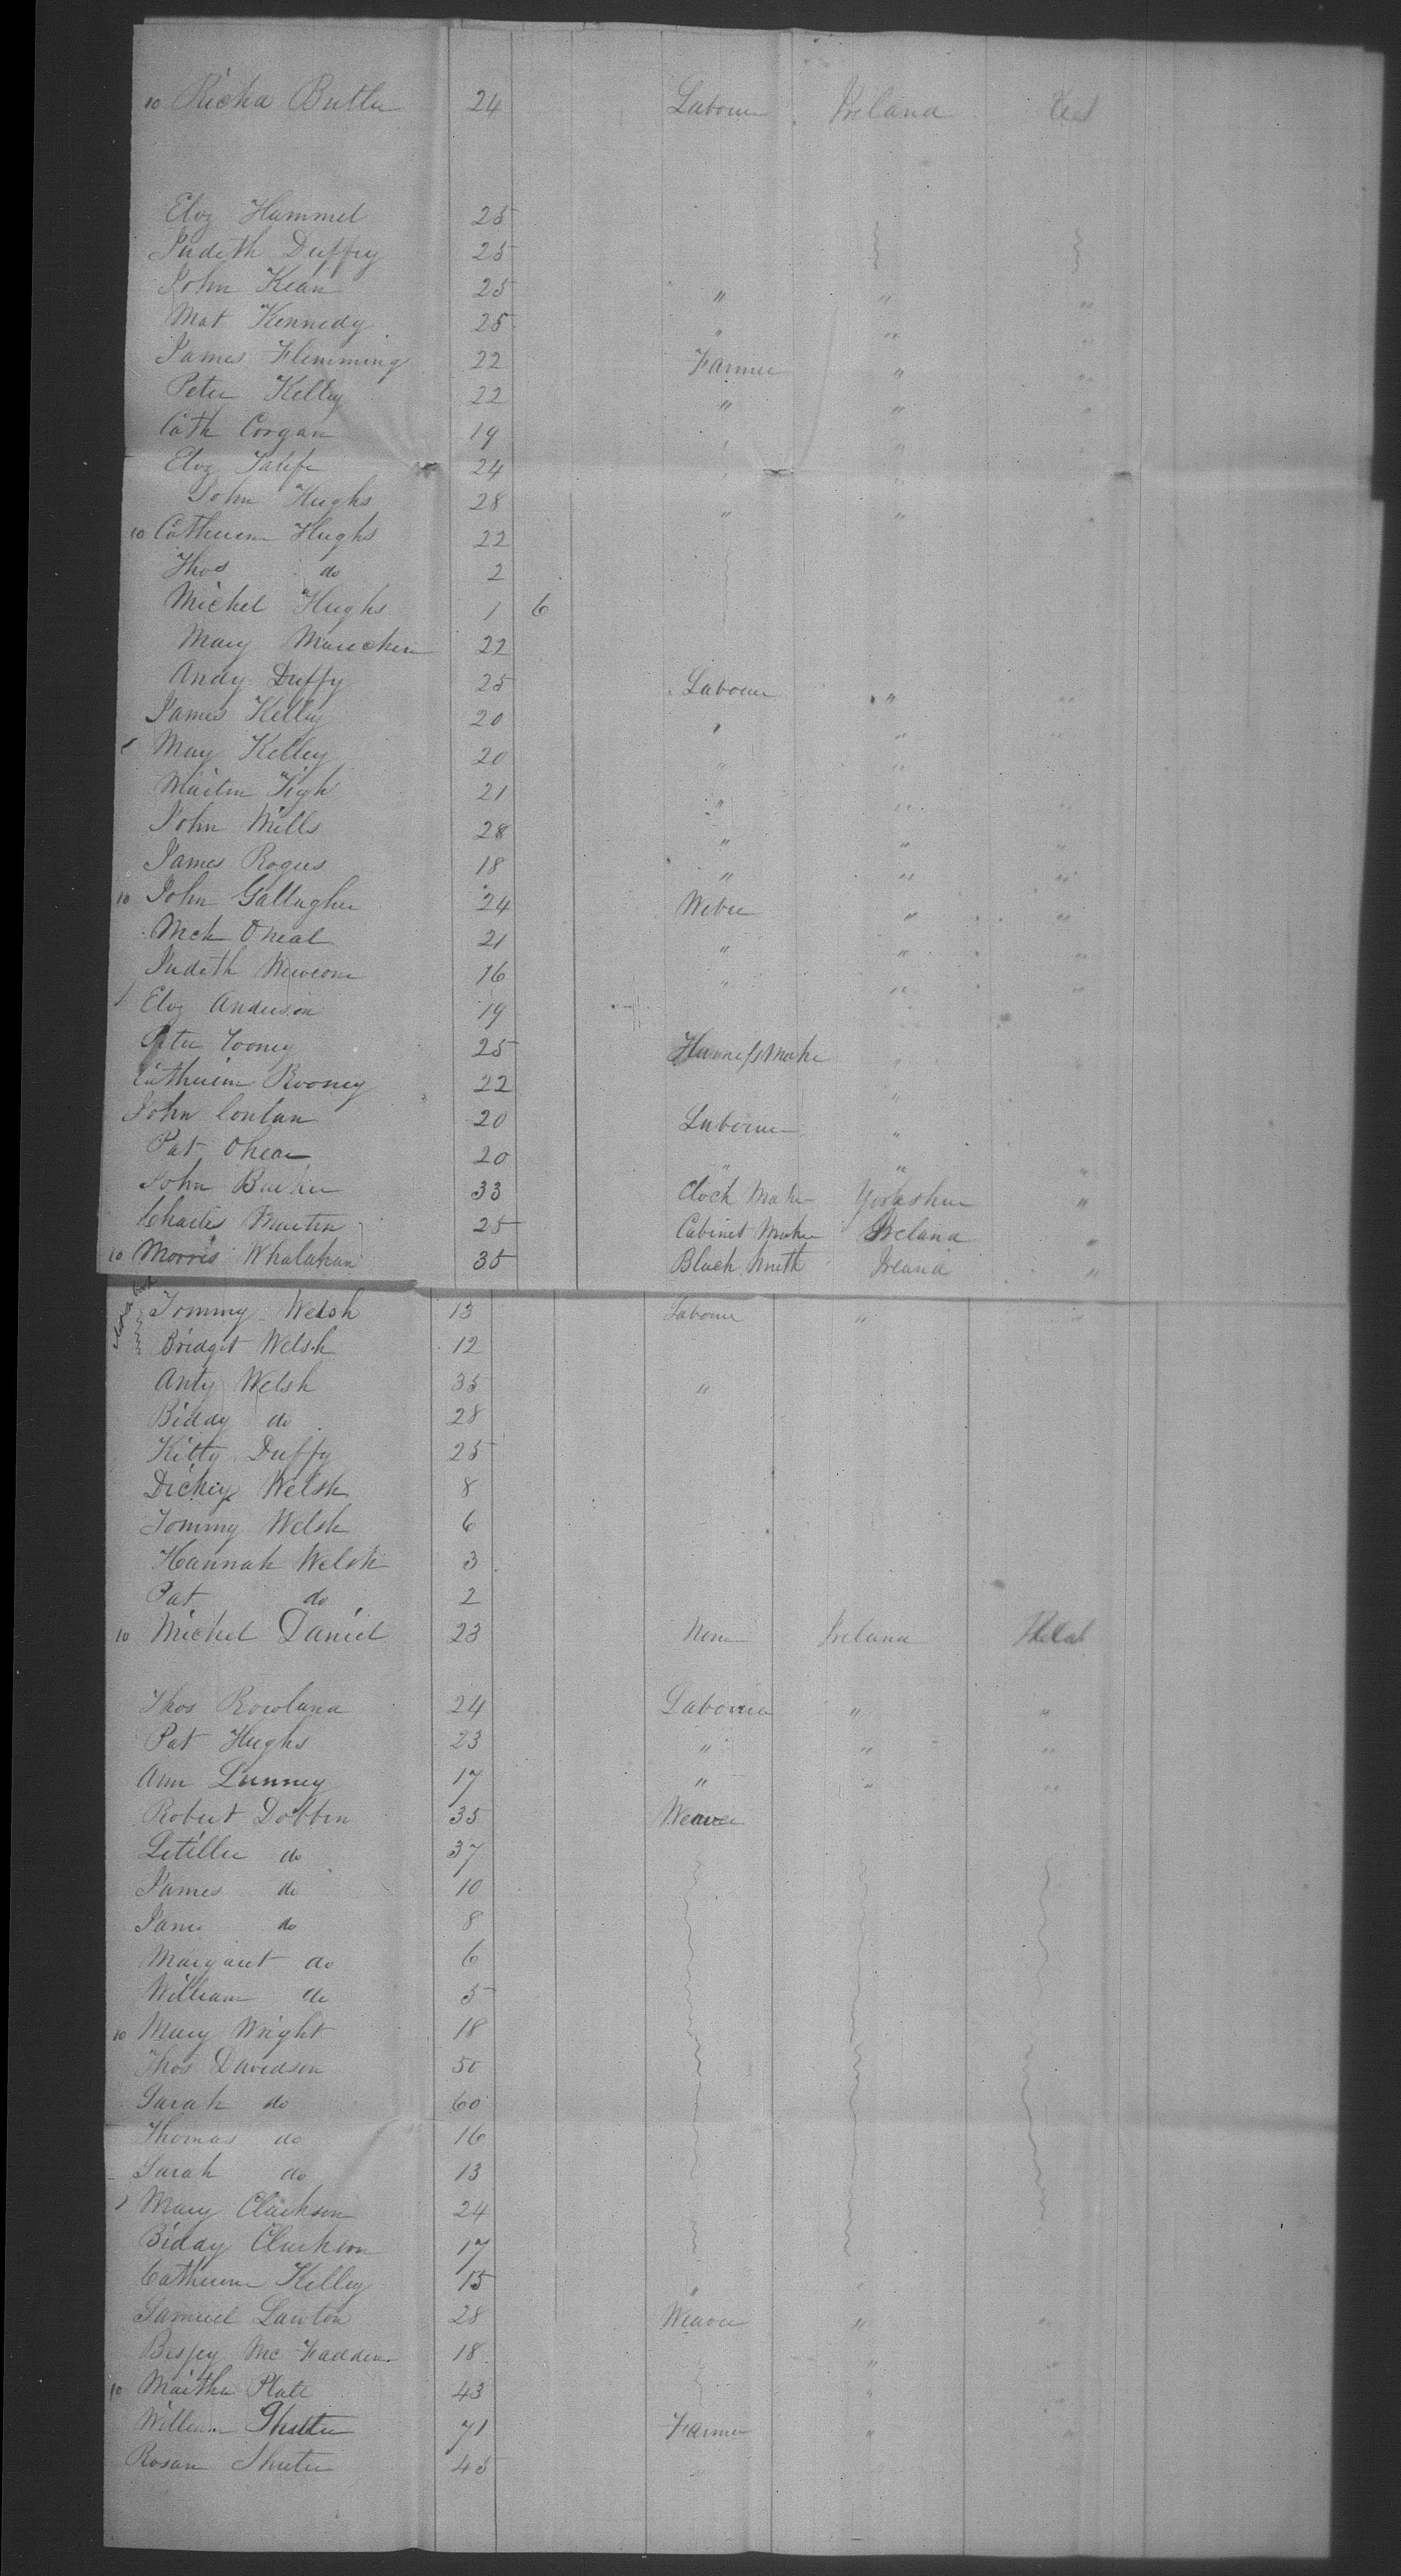 10 Richd Butler 24 Laborer Ireland US
Eloz Hammel 25
Judith Duffey 25
John Kean 25 " " "
Mat Kennedy 25 " " "
James Flemming 22 Farmer " "
Peter Kelley 22 " " "
Cath Corgan 19 " "
Eloz 24 " "
John Hughs 28 " "
10 Catherine Hughs 22
Thos do 2
Michel Hughs 1 6
Mary 22
Andy Duffy 25 Laborer " "
James Kelley 20 " " "
May Kelley 20 " "
Martin Tigh 21 " " "
John Mills 28 " " "
James Rogers 18 " " "
10 John Gallagher 24 Weber " "
Mck Oneal 21 " " "
Judith 16 " " "
Eloz Anderson 19
Peter Tooney 25 Harness Maker "
Catherine Rooney 22 "
John Conlan 20 Laborer "
Pat 20 " " "
John Barker 33 Clock Maker Yorkshire "
Charles Martin 25 Cabinet Maker Ireland "
10 Morris Whalahan 35 Black Smith Ireland "
Tommy Welsh 13 Laborer " "
Bridget Welsh 12
Anty Welsh 35 "
Biddy do 28
Kitty Duffy 25
Dickey Welsh 8
Tommy Welsh 6
Hannah Welsh 3
Pat do 2
10 Michel Daniel 23 None Ireland Philad
Thos Rowland 24 Laborer " "
Pat Hughs 23 " " "
Ann Lunney 17 " " "
Robert Dobbin 35 Weaver
do 37
James do 10
Jane do 8
Margaret do 6
William do 5
10 Mary Wright 18
Thos Davidson 50
Sarah do 60
Thomas do 16
Sarah do 13
Mary Clarkson 24
Biday Clarkson 17
Catherine Kelley 15 "
Samuel Lawton 28 Weaver " "
Bessey Mc Fadden 18 " "
10 Martha Plate 43 "
William Shutter 71 Farmer " "
Rosan Shuter 45